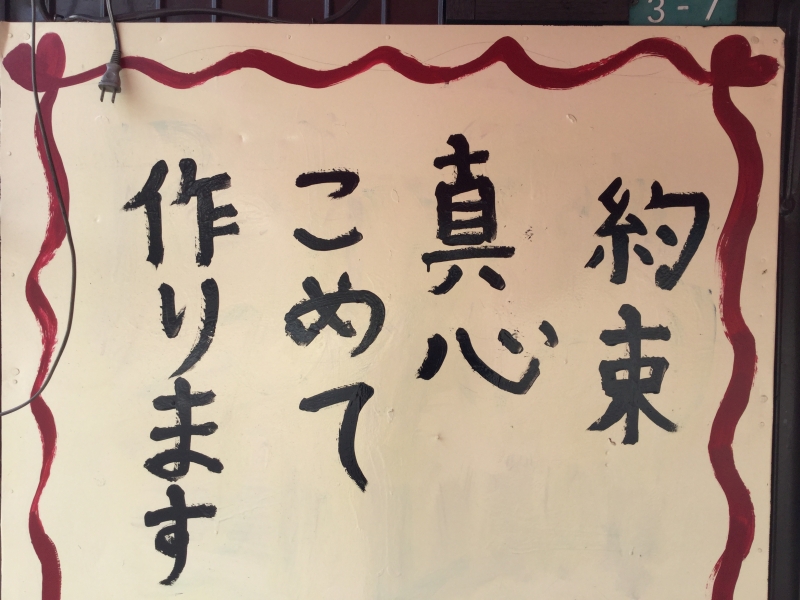 3-7
約束
真心
こめて
作ります